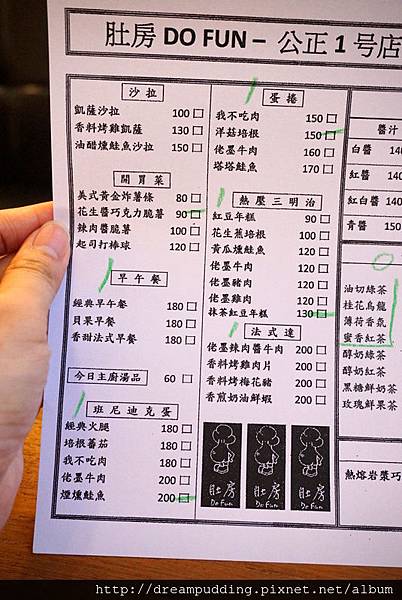 肚房 DO FUN – 公正 1 号店
沙拉
凱薩沙拉 100
香料烤雞凱薩 130
油醋燻鮭魚沙拉 150
開胃菜
美式黃金炸薯條 80
花生醬巧克力脆薯 90
辣肉醬脆薯 100
起司打棒球 120
早午餐
經典早午餐 180
貝果早餐 180
香甜法式早餐 180
今日主廚湯品 60
班尼迪克蛋
經典火腿 180
培根蕃茄 180
我不吃肉 180
佬墨牛肉 200
煙燻鮭魚 200
蛋捲
我不吃肉 150
洋菇培根 150
佬墨牛肉 160
塔塔鮭魚 170
熱壓三明治
紅豆年糕 90
花生蕉培根 100
黃瓜燻鮭魚 120
佬墨牛肉 120
佬墨豬肉 120
佬墨雞肉 120
抹茶紅豆年糕 130
法式達
佬墨辣肉醬牛肉 200
香料烤雞肉片 200
香料烤梅花豬 200
香煎奶油鮮蝦 200
肚房 Do Fun
肚房 Do Fun
肚房 Do Fun
醬汁
白醬 140
紅醬 140
紅白醬 140
青醬 150
油切綠茶
桂花烏龍
薄荷香氛
蜜香紅茶
醇奶綠茶
醇奶紅茶
黑糖鮮奶茶
玫瑰鮮果茶
熱熔岩漿巧
http://dreampudding.pixnet.net/album